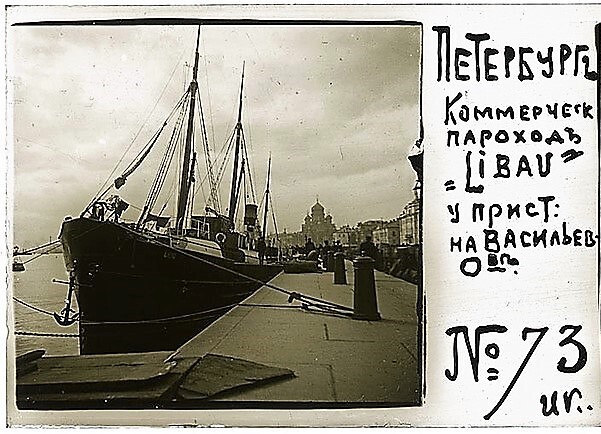 ПЕТЕРБУРГЪ
КОММЕРЧЕСК
ПАРОХОДЪ
"LiBAU"
У ПРИСТ:
НА ВАСИЛЬЕВ-
О ВѢ.
№ 73